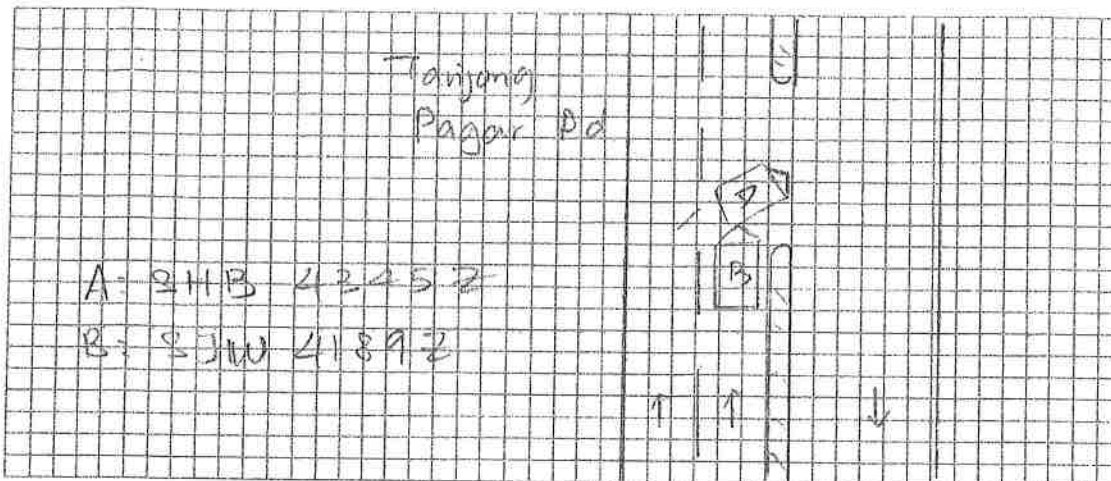 Tanjong
Pagar Rd
A: SHB 4245Z
B: SJW 4189Z
A
B